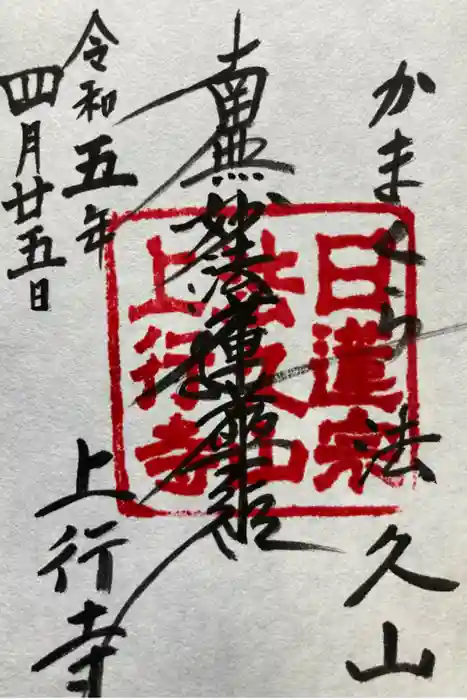 かまくら 法久山
南無妙法蓮華経
令和五年
四月廿五日
上行寺
日蓮宗
法久山
上行寺